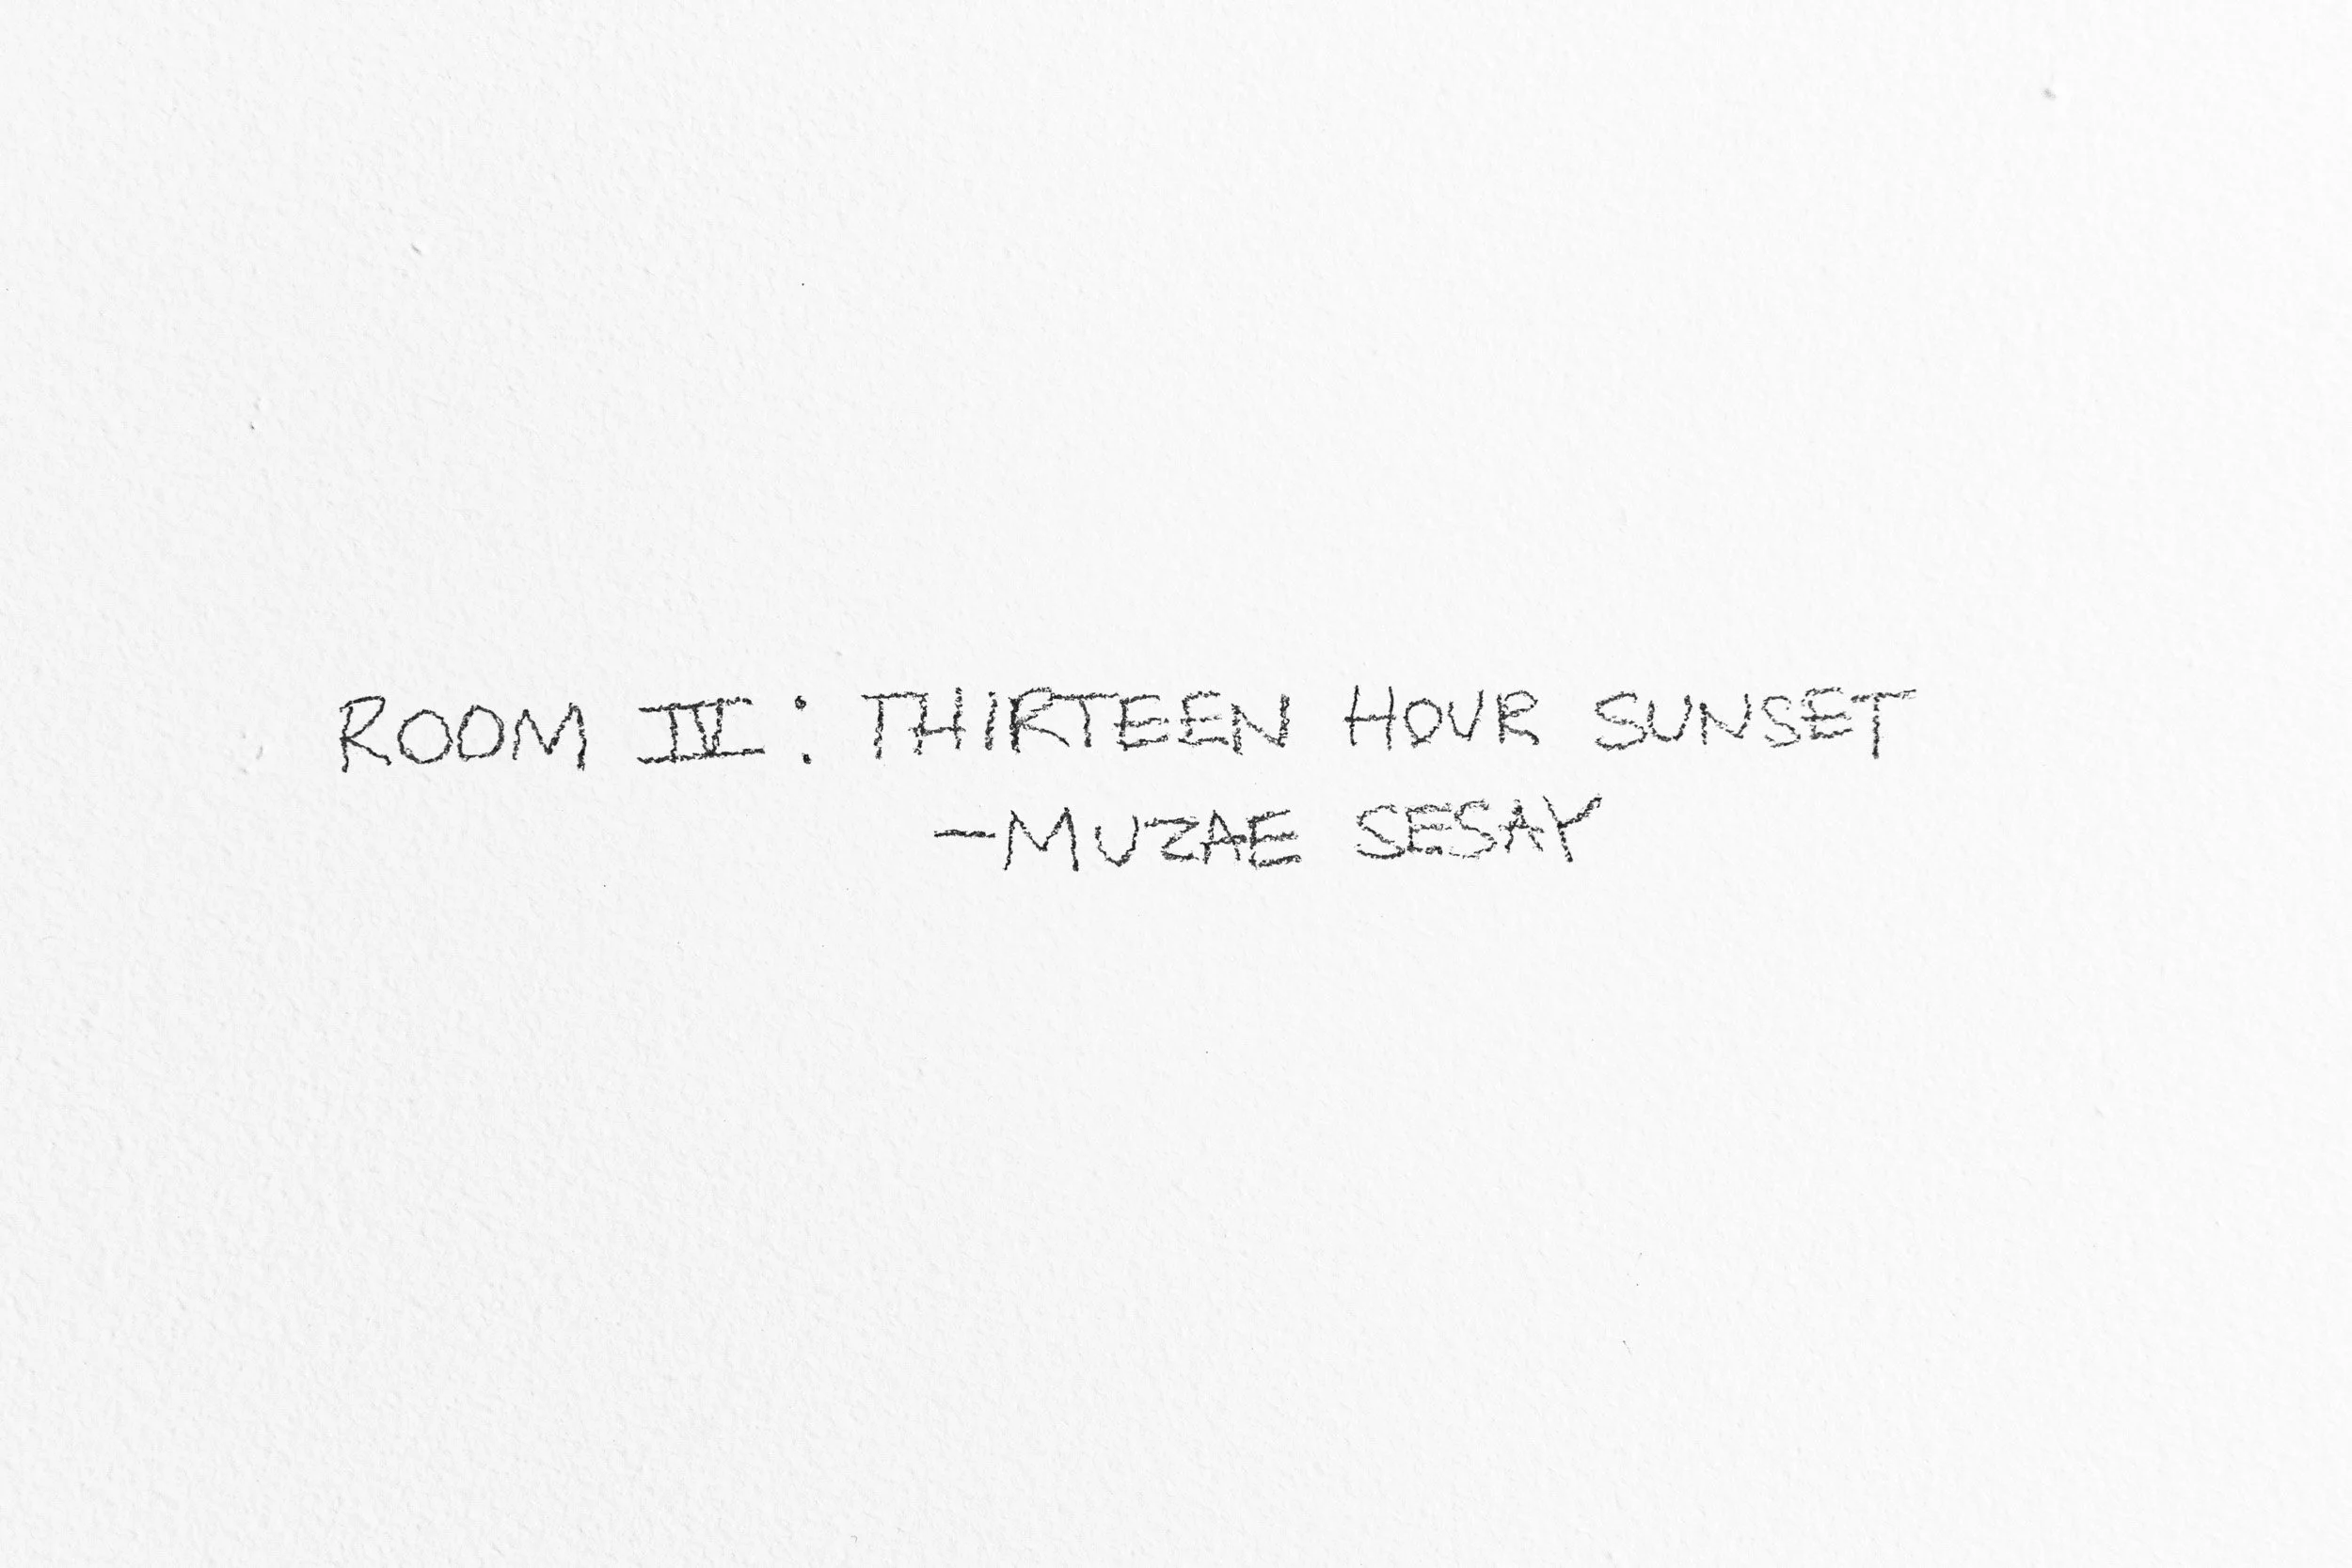 ROOM IV: THIRTEEN HOUR SUNSET
-MUZAE SESAY